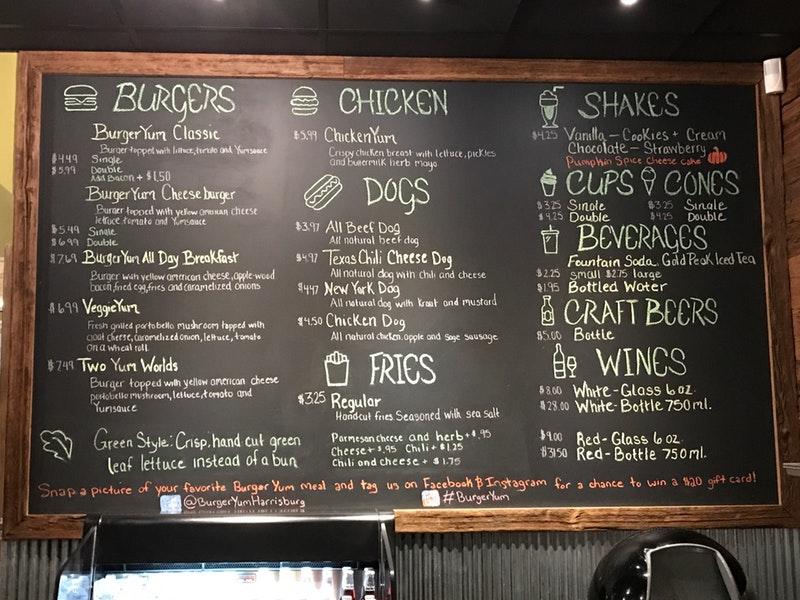 BURGERS
BurgerYum Classic
Burger topped with lettuce, tomato and Yumsauce
$4.49 Single
$5.99 Double
Add Bacon + $1.50
BurgerYum Cheeseburger
Burger topped with yellow american cheese
lettuce, tomato and Yumsauce
$5.49 Single
$6.99 Double
$7.69 BurgerYum All Day Breakfast
Burger with yellow american cheese, apple-wood
bacon, fried egg, fries and caramelized onions
$6.99 VeggieYum
Fresh grilled portobello mushroom topped with
goat cheese, caramelized onion, lettuce, tomato
on a wheat roll
$7.49 Two Yum Worlds
Burger topped with yellow american cheese
portobello mushroom, lettuce, tomato and
Yumsauce
Green Style: Crisp, hand cut green
leaf lettuce instead of a bun
CHICKEN
$5.99 ChickenYum
Crispy chicken breast with lettuce, pickles
and buttermilk herb mayo
DOGS
$3.97 All Beef Dog
All natural beef dog
$4.97 Texas Chili Cheese Dog
All natural dog with chili and cheese
$4.47 New York Dog
All natural dog with kraut and mustard
$4.50 Chicken Dog
All natural chicken, apple and sage sausage
FRIES
$3.25 Regular
Handcut fries Seasoned with sea salt
Parmesan cheese and herb + $.95
Cheese + $.95 Chili + $1.25
Chili and cheese + $1.75
SHAKES
$4.25 Vanilla - Cookies + Cream
Chocolate - Strawberry
Pumpkin Spice Cheese cake
CUPS CONES
$3.25 Single $3.25 Single
$4.25 Double $4.25 Double
BEVERAGES
Fountain Soda Gold Peak Iced Tea
$2.25 small $2.75 large
$1.95 Bottled Water
CRAFT BEERS
$5.00 Bottle
WINES
$8.00 White - Glass 6 oz.
$28.00 White Bottle 750 ml.
$9.00 Red - Glass 6 oz
$31.50 Red - Bottle 750 ml.
Snap a picture of your favorite Burger Yum meal and tag us on Facebook & Instagram for a chance to win a $20 gift card!
@BurgerYumHarrisburg #BurgerYum